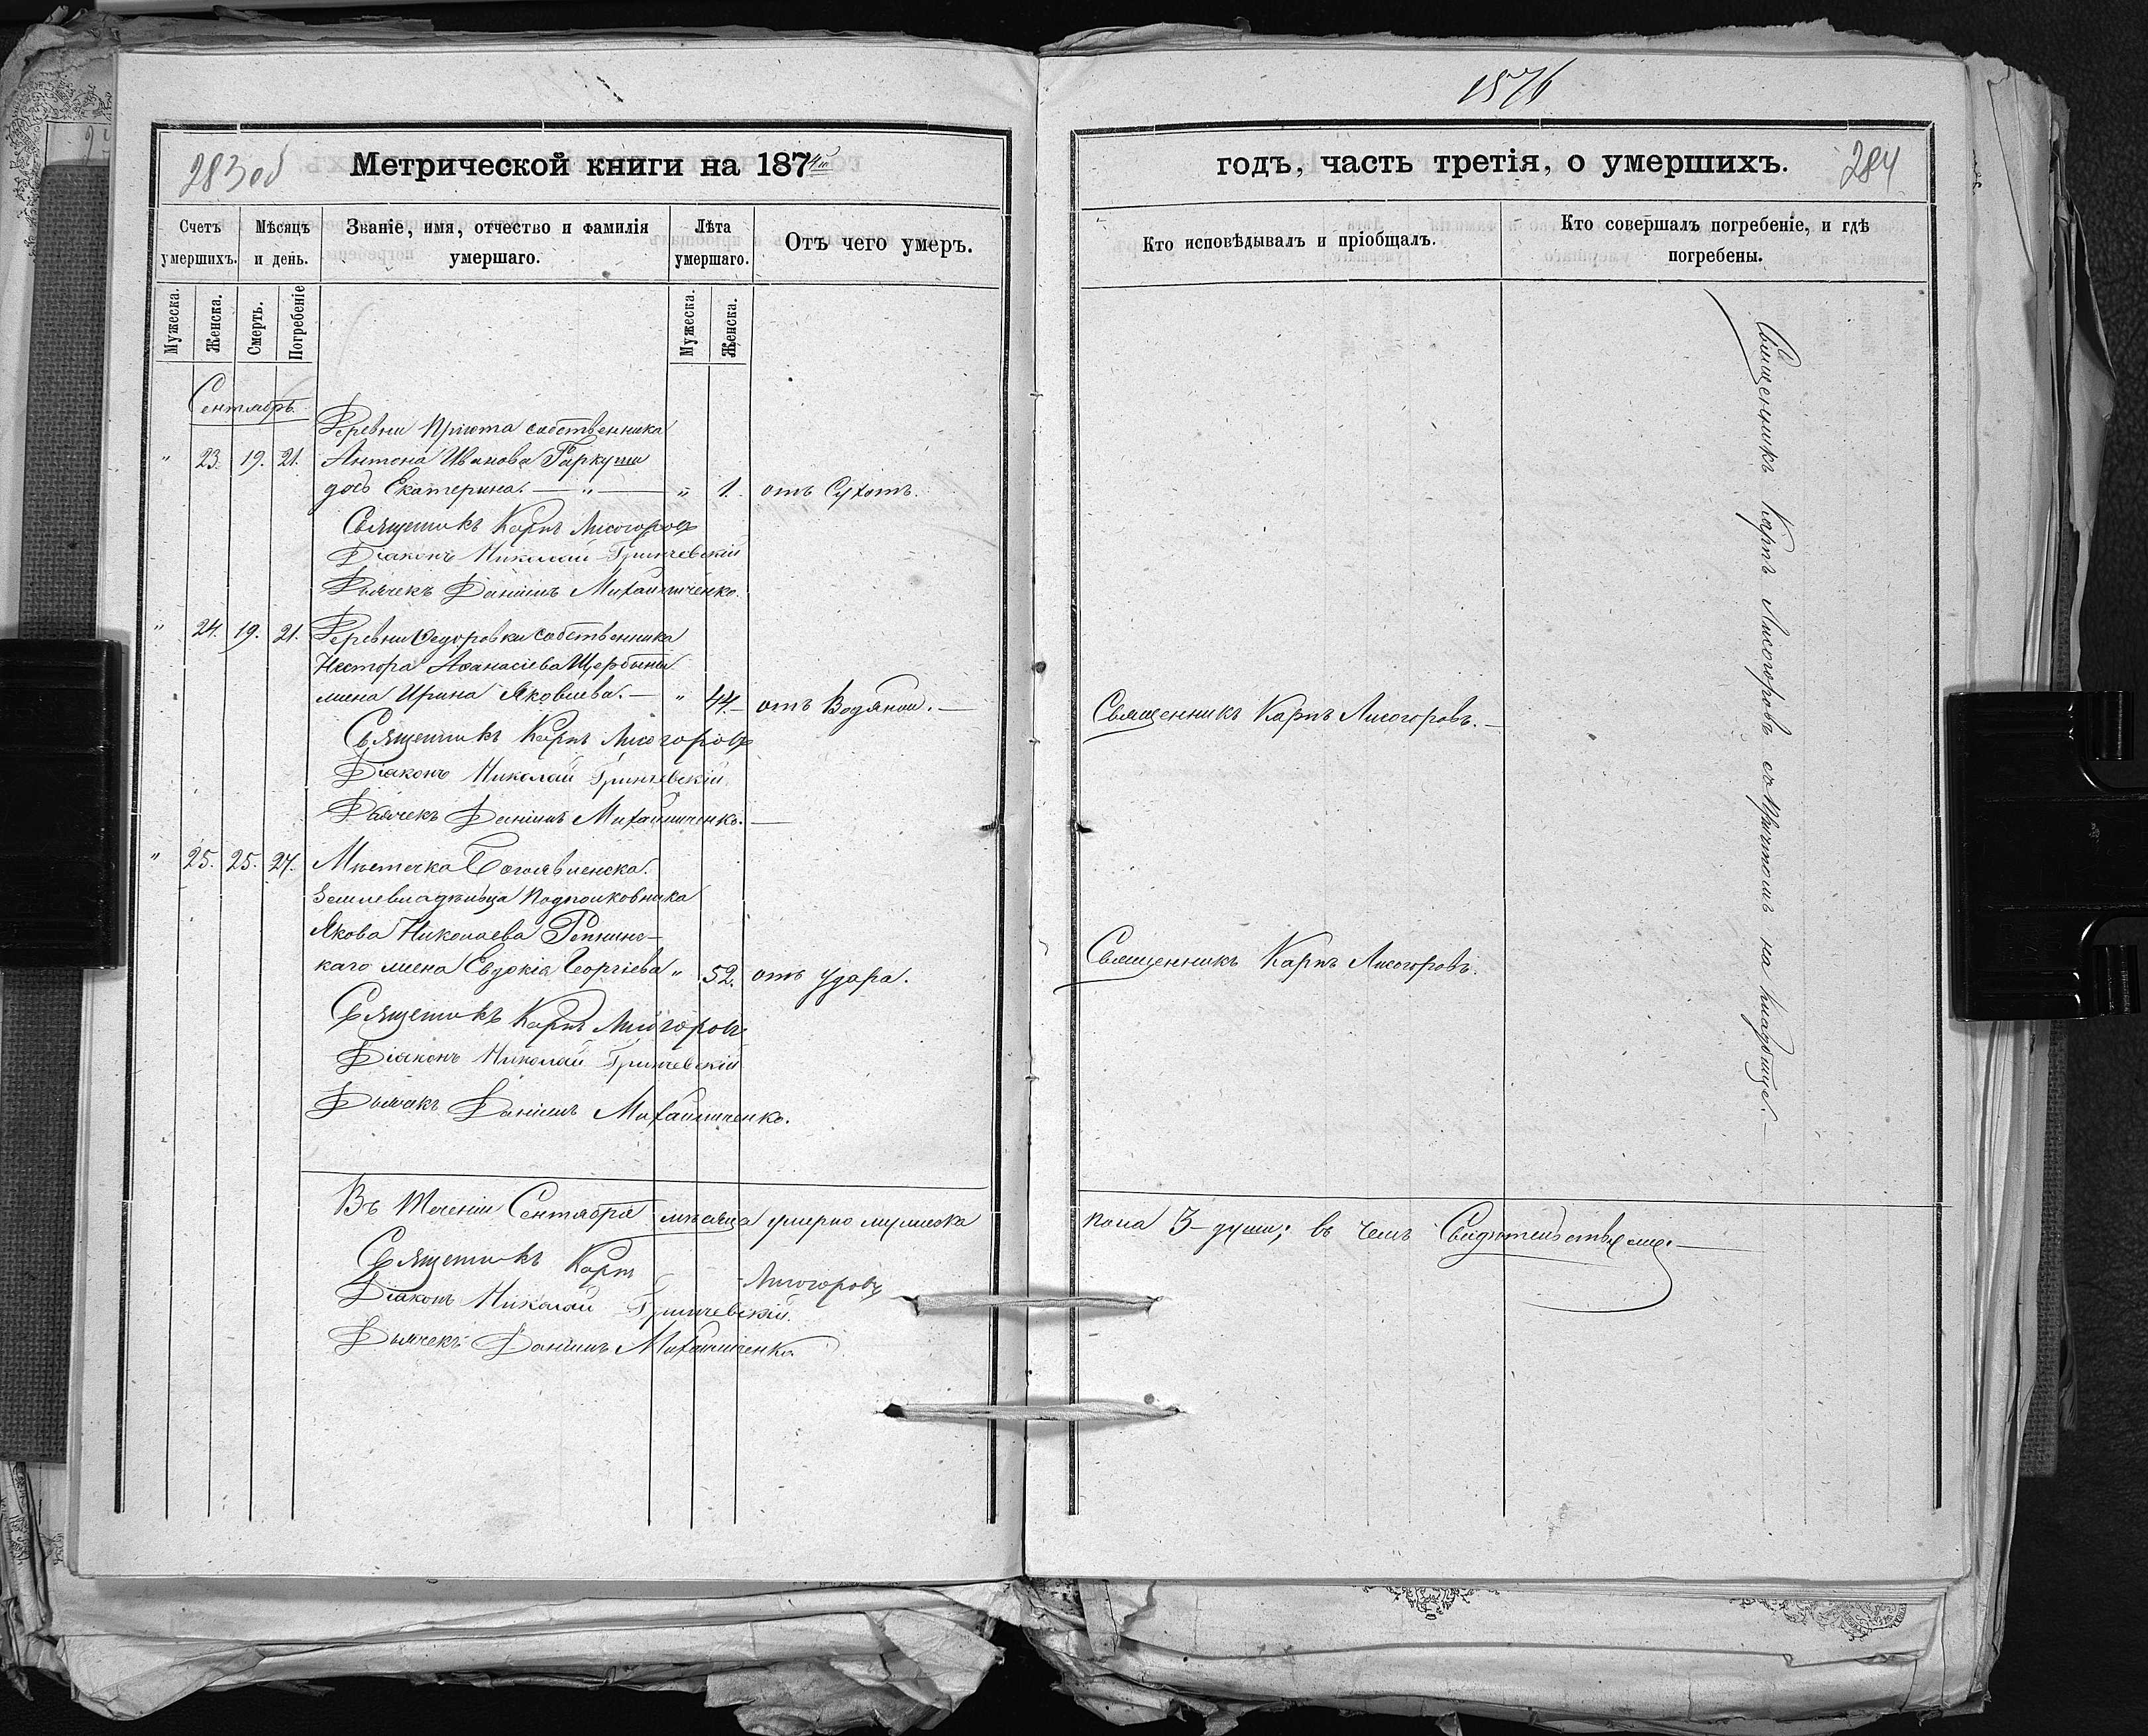 283об
Метрической книги на 1874й
Счетъ умершихъ.
Мѣсяцъ и день.
Званіе, имя, отчество и фамилія умершаго.
Лѣта умершаго.
Отъ чего умеръ.
Мужеска.
Женска.
Смерть.
Погребеніе
Мужеска.
Женска.
Сентябрь.
Деревни Пріюта собственника
" 23. 19. 21. Антона Иванова Гаркуши
дочь Екатерина. — " — " 1. отъ Сухотъ.
Священникъ Карпъ Лисогоровъ
Діаконъ Николай Гринчевскій
Дьячекъ Даніилъ Михайличенко.
" 24. 19. 21. Деревни Ѳедоровки собственника
Нестора Аѳанасіева Щербины
жена Ирина Яковлева. — " 44. — отъ Водяной. —
Священникъ Карпъ Лисогоровъ
Діаконъ Николай Гринчевскій
Дьячекъ Даніилъ Михайличенко. —
" 25. 25. 27. Мѣстечка Богоявленска.
Землевладѣльца Подполковника
Якова Николаева Репнинс-
каго жена Евдокія Георгіева " 52. отъ удара.
Священникъ Карпъ Лисогоровъ
Діаконъ Николай Гринчевскій
Дьячекъ Даніилъ Михайличенко.
Въ теченіи Сентября мѣсяца умерло женска
Священникъ Карпъ Лисогоровъ
Діаконъ Николай Гринчевскій.
Дьячекъ Даніилъ Михайличенко
1576
годъ, часть третія, о умершихъ.
284
Кто исповѣдывалъ и пріобщалъ.
Кто совершалъ погребеніе, и гдѣ погребены.
Священникъ Карпъ Лисогоровъ. —
Священникъ Карпъ Лисогоровъ.
Священникъ Карпъ Лисогоровъ съ Причтомъ на кладбищѣ. —
пола 3 — души; въ чемъ Свидѣтельствуемъ. —